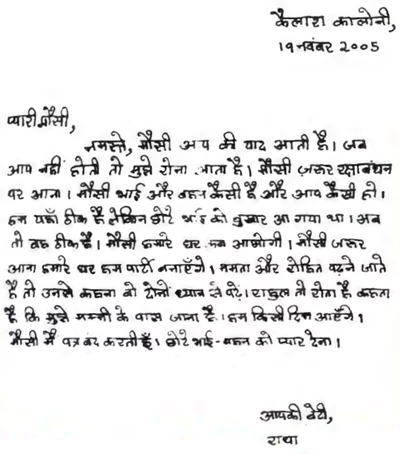 कैलाश कालोनी,
19 नवंबर 2005
प्यारी मौसी,
नमस्ते, मौसी आप की याद आती है। जब
आप नहीं होती तो मुझे रोना आता है। मौसी ज़रूर रक्षाबंधन
पर आना। मौसी भाई और बहन कैसी है और आप कैसी हो।
हम यहाँ ठीक है लेकिन छोटे भाई को बुखार आ गया था। अब
तो वह ठीक है। मौसी हमारे घर कब आओगी। मौसी ज़रूर
आना हमारे घर हम पार्टी मनाएँगे। ममता और रोहित पढ़ने जाते
है तो उनसे कहना वो दोनों ध्यान से पढ़ें। राहुल तो रोता है कहता
है कि मुझे मम्मी के पास जाना है। हम किसी दिन आएँगे।
मौसी मैं पत्र बंद करती हूँ। छोटे भाई-बहन को प्यार देना।
आपकी बेटी,
राधा